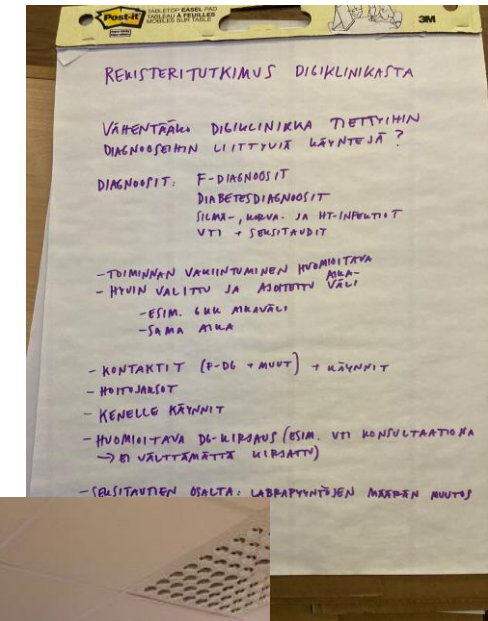 Post-it
TABLETOP EASEL PAD
TABLEAU À FEUILLES
MOBILES SUR TABLE
3M
REKISTERITUTKIMUS DIGIKLINIKASTA
VÄHENTÄÄKö DIGIKLINIKKA TIETTYIHIN
DIAGNOOSEIHIN LIITTYVIÄ KÄYNTEJÄ ?
DIAGNOOSIT: F-DIAGNOOSIT
DIABETESDIAGNOOSIT
SILMÄ-, KORVA- JA HT-INFEKTIOT
VTI + SEKSITAUDIT
- TOIMINNAN VAKIINTUMINEN HUOMIOITAVA
- HYVIN VALITTU JA AJOITETTU AIKA-
VÄLI
- ESIM. 6KK AIKAVÄLI
- SAMA AIKA
- KONTAKTIT (F-DG + MUUT) + KÄYNNIT
- HOITOJAKSOT
- KENELLE KÄYNNIT
- HUOMIOITAVA DG-KIRJAUS (ESIM. VTI KONSULTAATIONA
→ EI VÄLTTÄMÄTTÄ KIRJATTU)
- SEKSITAUTIEN OSALTA: LABRAPYYNTÖJEN MÄÄRÄN MUUTOS